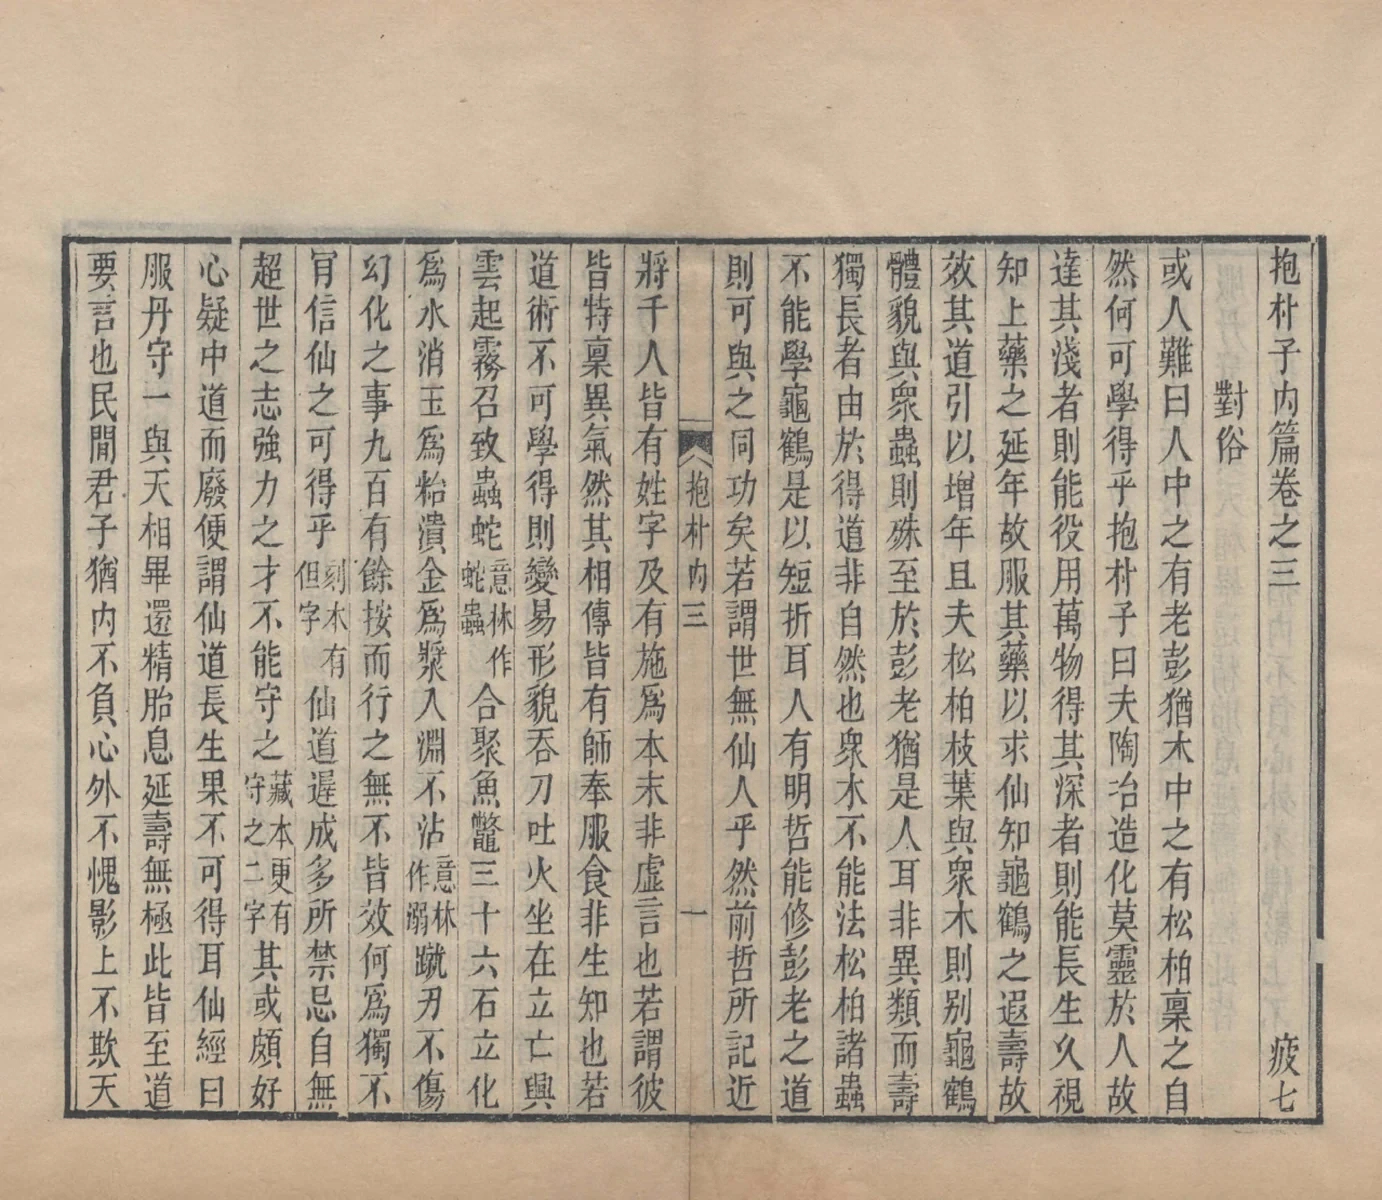 抱朴子內篇卷之三　疲七
對俗
或人難曰人中之有老彭猶木中之有松柏稟之自
然何可學得乎抱朴子曰夫陶冶造化莫靈於人故
達其淺者則能役用萬物得其深者則能長生久視
知上藥之延年故服其藥以求仙知龜鶴之遐壽故
效其道引以增年且夫松柏枝葉與眾木則别龜鶴
體貌與眾蟲則殊至於彭老猶是人耳非異類而壽
獨長者由於得道非自然也眾木不能法松柏諸蟲
不能學龜鶴是以短折耳人有明哲能修彭老之道
則可與之同功矣若謂世無仙人乎然前哲所記近
抱朴內三　一
將千人皆有姓字及有施爲本末非虛言也若謂彼
皆特稟異氣然其相傳皆有師奉服食非生知也若
道術不可學得則變易形貌吞刀吐火坐在立亡興
雲起霧召致蟲蛇意林作蛇蟲合聚魚鼈三十六石立化
爲水消玉爲粭潰金爲漿入淵不沾意林作溺蹴刃不傷
幻化之事九百有餘按而行之無不皆效何爲獨不
肯信仙之可得乎刻本有但字仙道遲成多所禁忌自無
超世之志強力之才不能守之藏本更有守之二字其或頗好
心疑中道而廢便謂仙道長生果不可得耳仙經曰
服丹守一與天相畢還精胎息延壽無極此皆至道
要言也民間君子猶內不負心外不愧影上不欺天